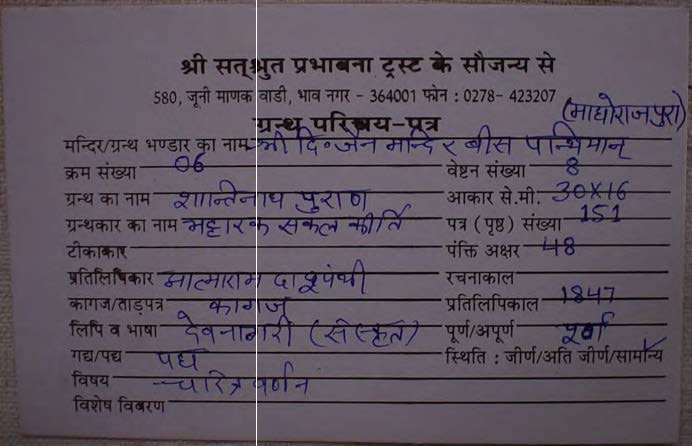 श्री सत्श्रुत प्रभावना ट्रस्ट के सौजन्य से
580, जूनी माणक वाडी, भाव नगर - 364001 फोन : 0278- 423207
(माधोराजपुरा)
ग्रन्थ परिचय-पत्र
मन्दिर/ग्रन्थ भण्डार का नाम श्री दि॰ जैन मन्दिर बीस पन्थियान्
क्रम संख्या 06 वेष्टन संख्या 8
ग्रन्थ का नाम शान्तिनाथ पुराण आकार से.मी. 30X16
ग्रन्थकार का नाम भट्टारक सकल कीर्ति पत्र (पृष्ठ) संख्या 151
टीकाकार पंक्ति अक्षर 48
प्रतिलिपिकार आत्माराम दादूपंथी रचनाकाल
कागज/ताड़पत्र कागज प्रतिलिपिकाल 1847
लिपि व भाषा देवनागरी (संस्कृत) पूर्ण/अपूर्ण पूर्ण
गद्य/पद्य पद्य स्थिति : जीर्ण/अति जीर्ण/सामान्य
विषय चारित्र वर्णन
विशेष विवरण